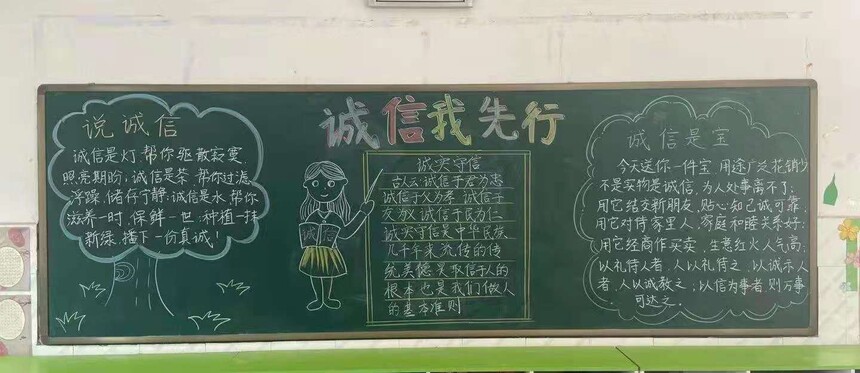 诚信我先行
说诚信
诚信是灯,帮你驱散寂寞,
照亮期盼;诚信是茶,帮你过滤
浮躁,储存宁静;诚信是水,帮你
滋养一时,保鲜一世;种植一抹
新绿,播下一份真诚!
诚信
诚实守信
古人云:诚信于君为忠
诚信于父为孝,诚信于
友为义,诚信于民为仁
诚实守信是中华民族
几千年来流传的传
统美德,是取信于人的
根本也是我们做人
的基本准则
诚信是宝
今天送你一件宝,用途广泛花销少
不是实物是诚信,为人处事离不了;
用它结交新朋友,贴心知己诚可靠;
用它对待家里人,家庭和睦关系好;
用它经商作买卖,生意红火人气高;
以礼待人者,人以礼待之,以诚示人
者,人以诚教之;以信为事者,则万事
可达之。